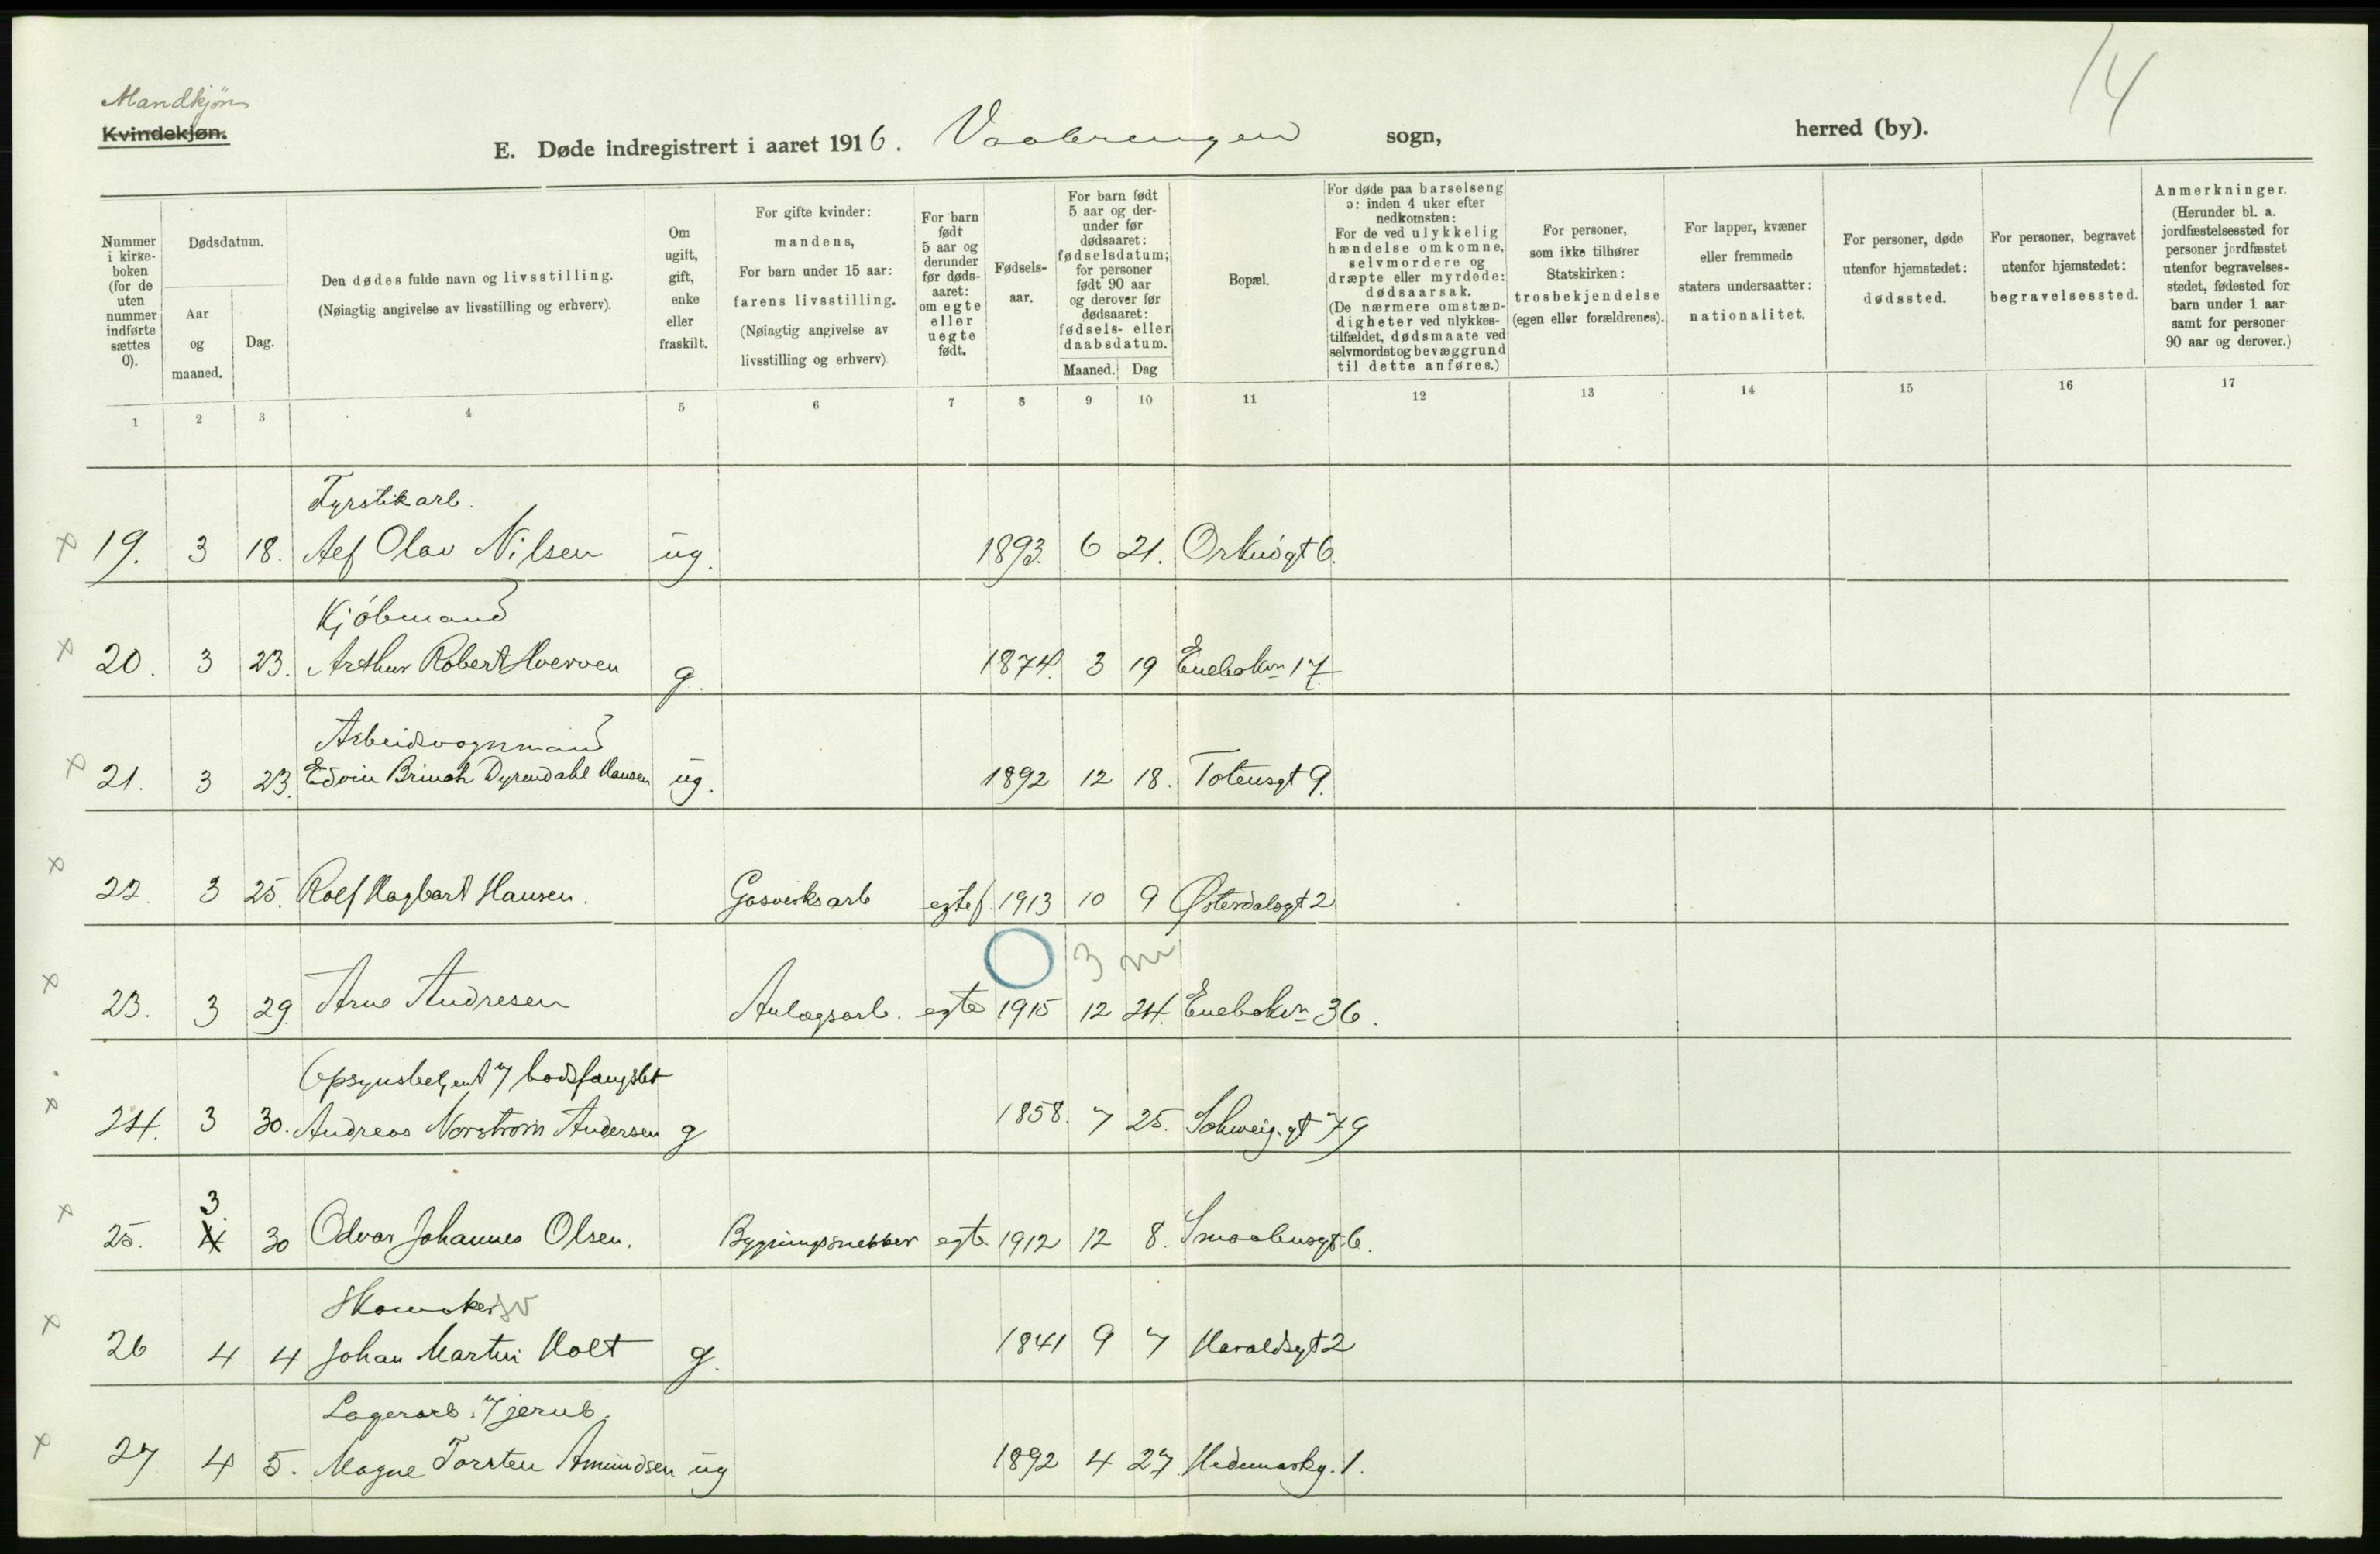 14
Mandkjøn
Kvindekjøn.
E. Døde indregistrert i aaret 1916. Vaalerengen sogn, herred (by).
Nummer i kirke- boken (for de uten nummer indførte sættes 0).
Dødsdatum.
Aar og maaned.
Dag.
Den dødes fulde navn og livsstilling.
(Nøiagtig angivelse av livsstilling og erhverv).
Om ugift, gift, enke eller fraskilt.
For gifte kvinder: mandens,
For barn under 15 aar: farens livsstilling.
(Nøiagtig angivelse av livsstilling og erhverv)
For barn født 5 aar og derunder før døds- aaret: om egte eller uegte født.
Fødsels- aar.
For barn født 5 aar og der- under før dødsaaret: fødselsdatum; for personer født 90 aar og derover før dødsaaret: fødsels- eller daabsdatum.
Maaned. Dag
Bopæl.
For døde paa barselseng ɔ: inden 4 uker efter nedkomsten:
For de ved ulykkelig hændelse omkomne, selvmordere og dræpte eller myrdede: dødsaarsak.
(De nærmere omstæn- digheter ved ulykkes- tilfældet, dødsmaate ved selvmordet og bevæggrund til dette anføres.)
For personer, som ikke tilhører Statskirken: trosbekjendelse (egen eller forældrenes).
For lapper, kvæner eller fremmede staters undersaatter: nationalitet.
For personer, døde utenfor hjemstedet: dødssted.
For personer, begravet utenfor hjemstedet: begravelsessted.
Anmerkninger.
(Herunder bl. a. jordfæstelsessted for personer jordfæstet utenfor begravelses- stedet, fødested for barn under 1 aar samt for personer 90 aar og derover.)
1 2 3 4 5 6 7 8 9 10 11 12 13 14 15 16 17
Fyrstikarb.
x 19. 3 18. Alf Olav Nilsen ug. 1893. 6 21. Orknøgt 6.
Kjøbmand
x 20. 3 23. Arthur Robert Hverven g. 1874. 3 19 Enebakv. 17
Arbeidsvognmand
x 21. 3 23. Edvin Brinch Dyrendahl Hansen ug. 1892 12 18. Totensgt 9.
x 22. 3 25. Rolf Hagbart Hansen. Gasverksarb egtef. 1913 10 9 Østerdalsgt 2
3 m
x 23. 3 29. Arne Andresen Anlægsarb. egte 1915 12 24. Enebakv. 36.
Opsynsbetjent v/ bodsfængslet
x 24. 3 30. Andreas Norstrøm Andersen g 1858. 7 25. Schweig.gt 79
3.
x 25. 4 30 Odvar Johannes Olsen. Bygningssnekker egte 1912 12 8. Smaalensgt 6.
Skomaker
x 26 4 4 Johan Martin Holt g. 1841 9 7 Haraldsgt 2
Lagerarb. v/ jernb.
x 27 4 5. Magne Torsten Amundsen ug 1892 4 27. Hedemarkg. 1.